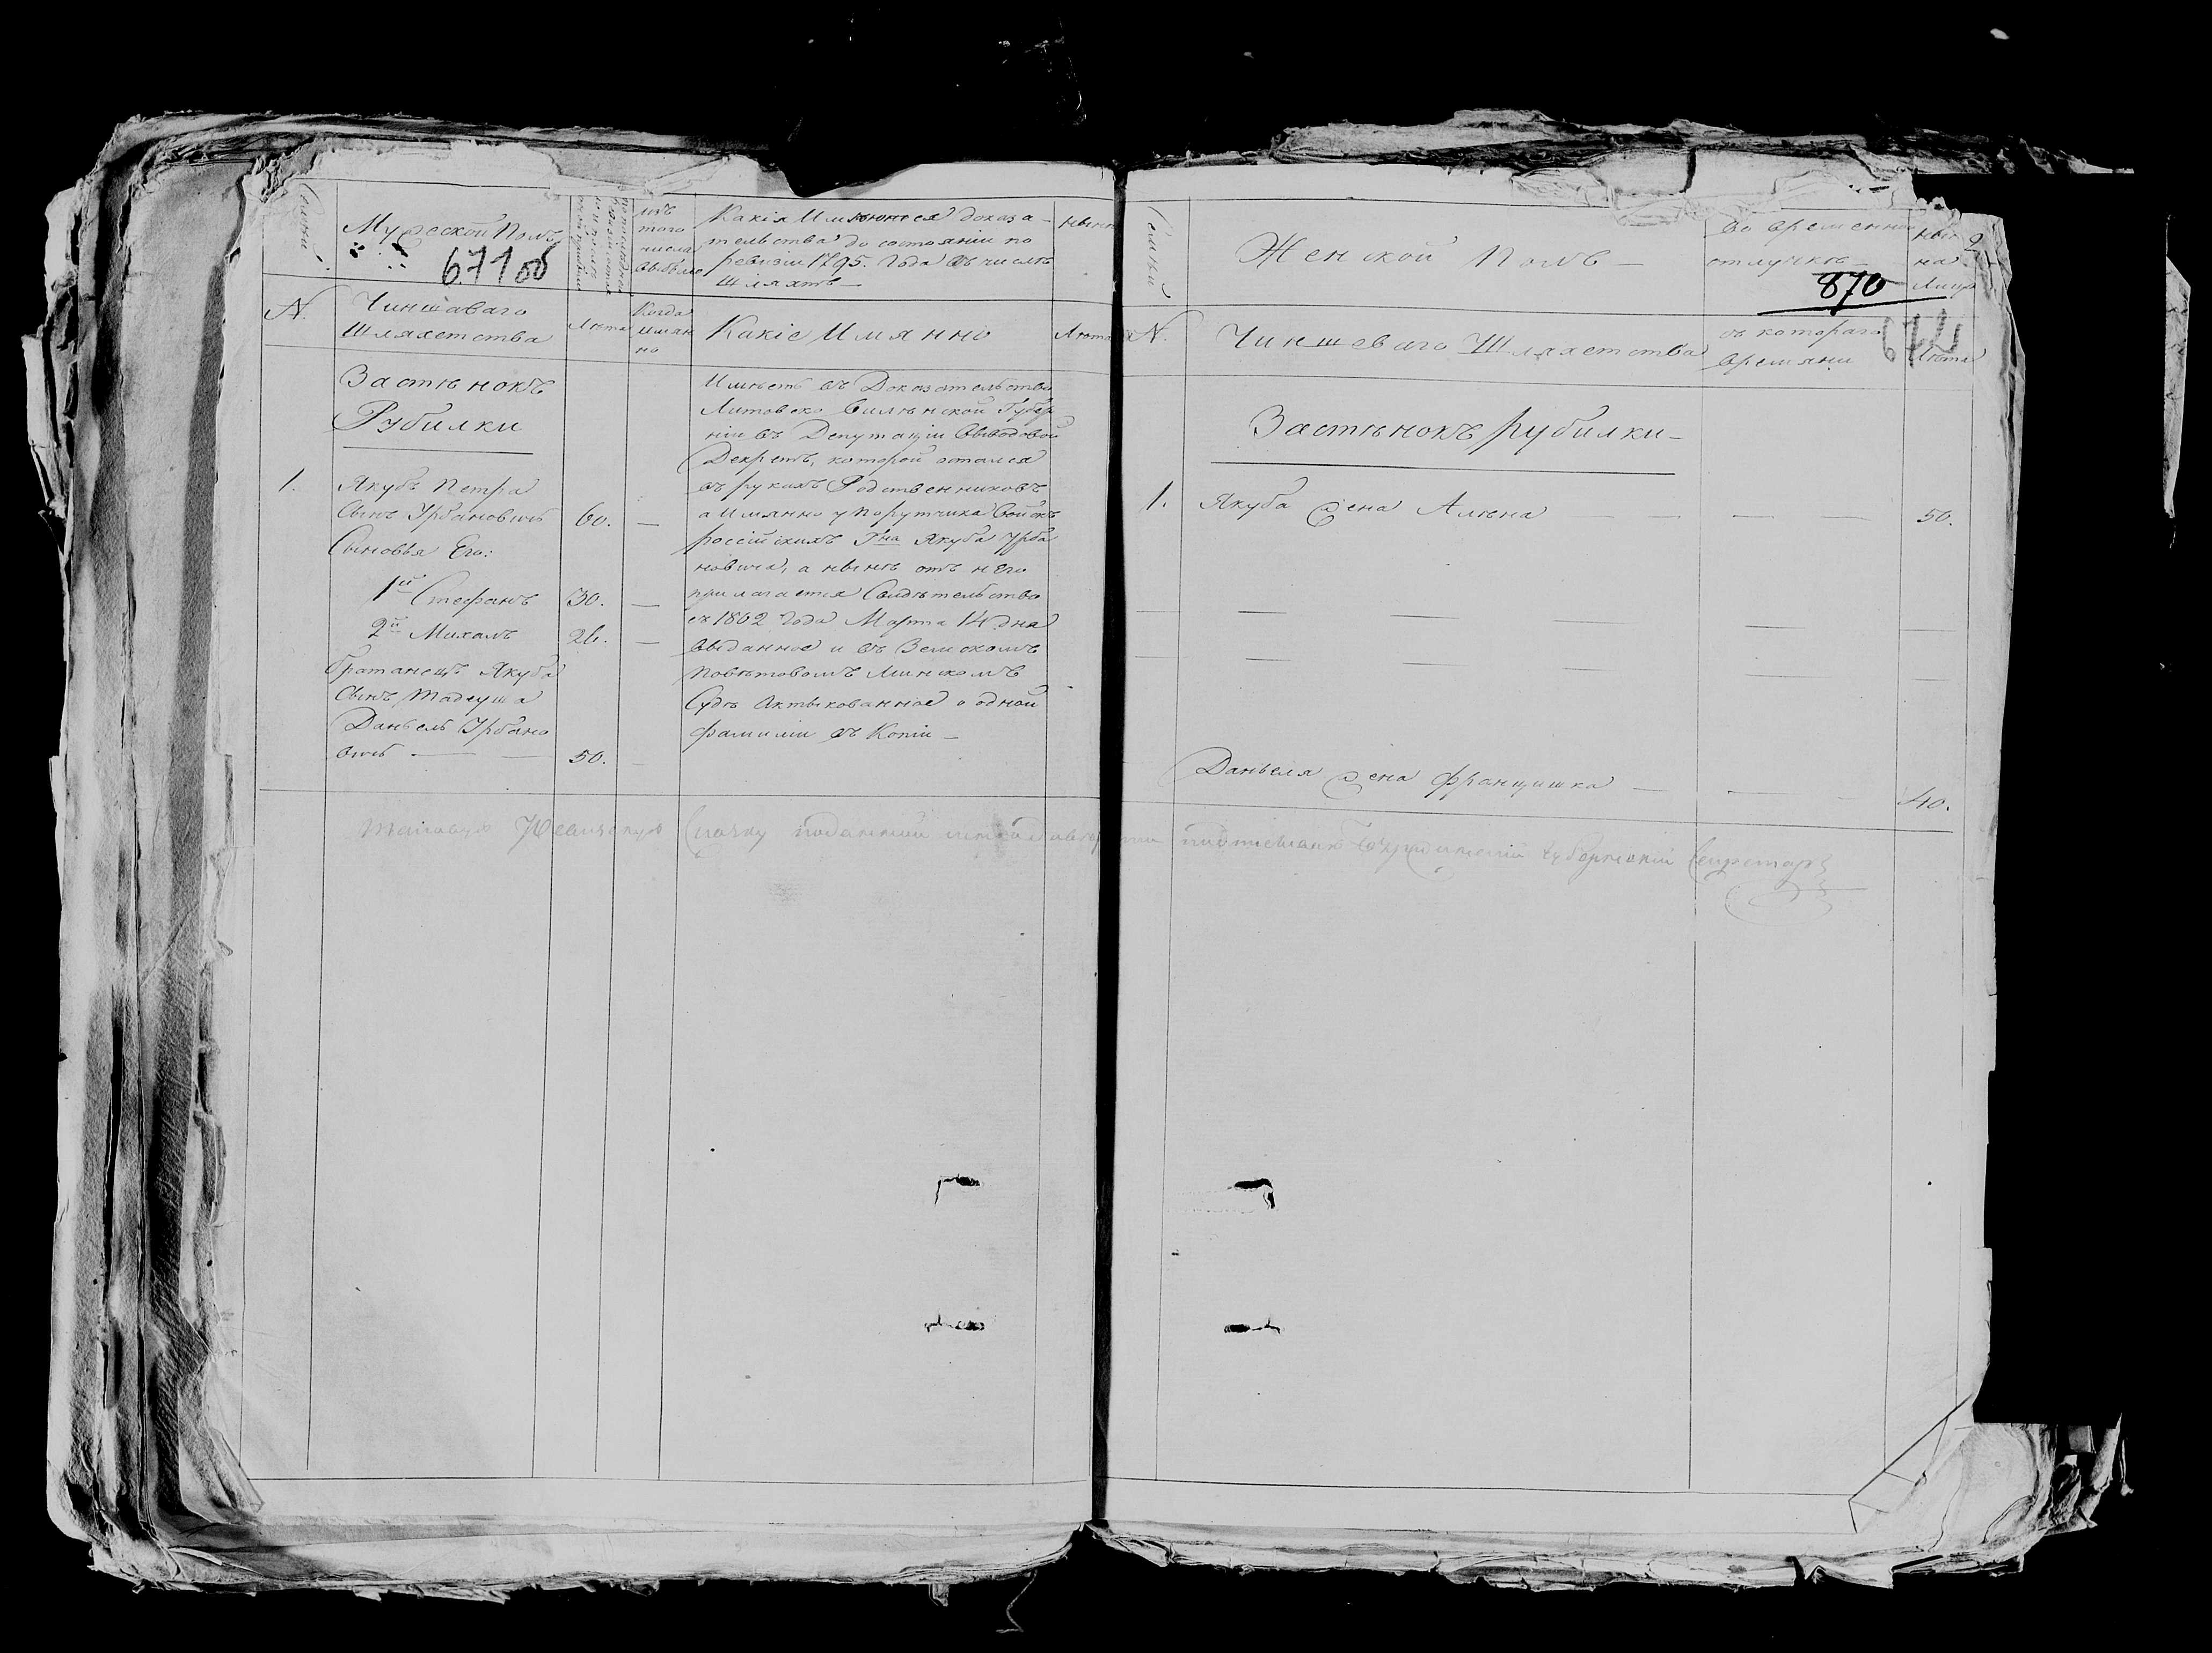 Семьи
Мужеской Полъ
671 об
изъ
того
числа
выбыло
Какія Имѣются доказа-
тельства до состоянія по
ревизіи 1795. Года въ числѣ
Шляхтѣ —
нынѣ
N.
Чиншаваго
Шляхетства
Лѣта
Когда
имян
но
Какіе Имянно
Лѣта
Застѣнокъ
Рубилки
1. Якубъ Петра
Сынъ Урбановичъ 60. —
Сыновья Его:
1й Стефанъ 30. —
2й Михалъ 26. —
братанецъ Якуба
Сынъ Тадеуша
Даніель Урбано
вичъ — — 50. —
Имѣетъ въ Доказательство
Литовско Виленской Губер
ніи въ Депутаціи Выводовой
Декретъ, которой остался
въ рукахъ Родственниковъ
а Имянно у Порутчика Войскъ
россійскихъ Гна Якуба Урба
новича, а нынѣ отъ него
прилагается Свидѣтельство
съ 1802 года Марта 14 дня
выданное и въ Земскомъ
Повѣтовомъ Минскомъ
Судѣ Актыкованное о одной
фамиліи въ Копіи —
Семьи
Женской Полъ —
Во временной
отлучкѣ —
870
ны
на
Лицо
2
N.
Чиншеваго Шляхетства
съ котораго
времяни
672
Лѣта
Застѣнокъ Рубилки —
1. Якуба жена Алена — — — — 50.
Даніеля жена Францишка — — — 40.
подписалъ Губернскій Секретарь